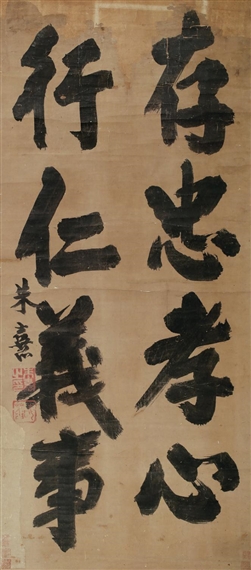 存忠孝心
行仁義事
朱熹